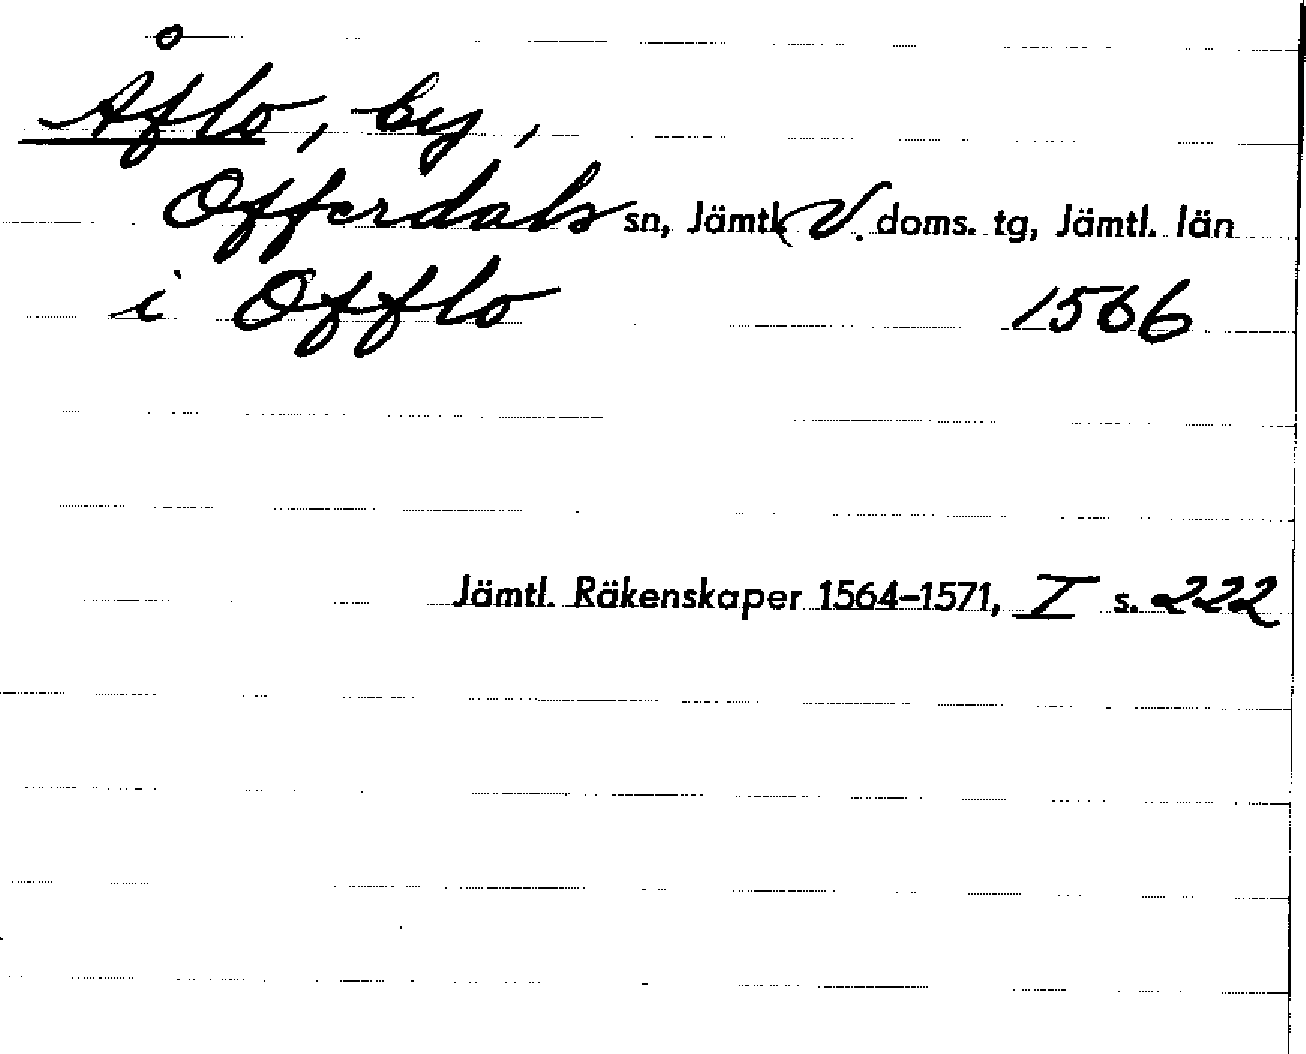 Åflo, by,
Offerdals sn, Jämtl. V. doms. tg, Jämtl. län
i Offlo 1566
Jämtl. Räkenskaper 1564–1571, I s. 222